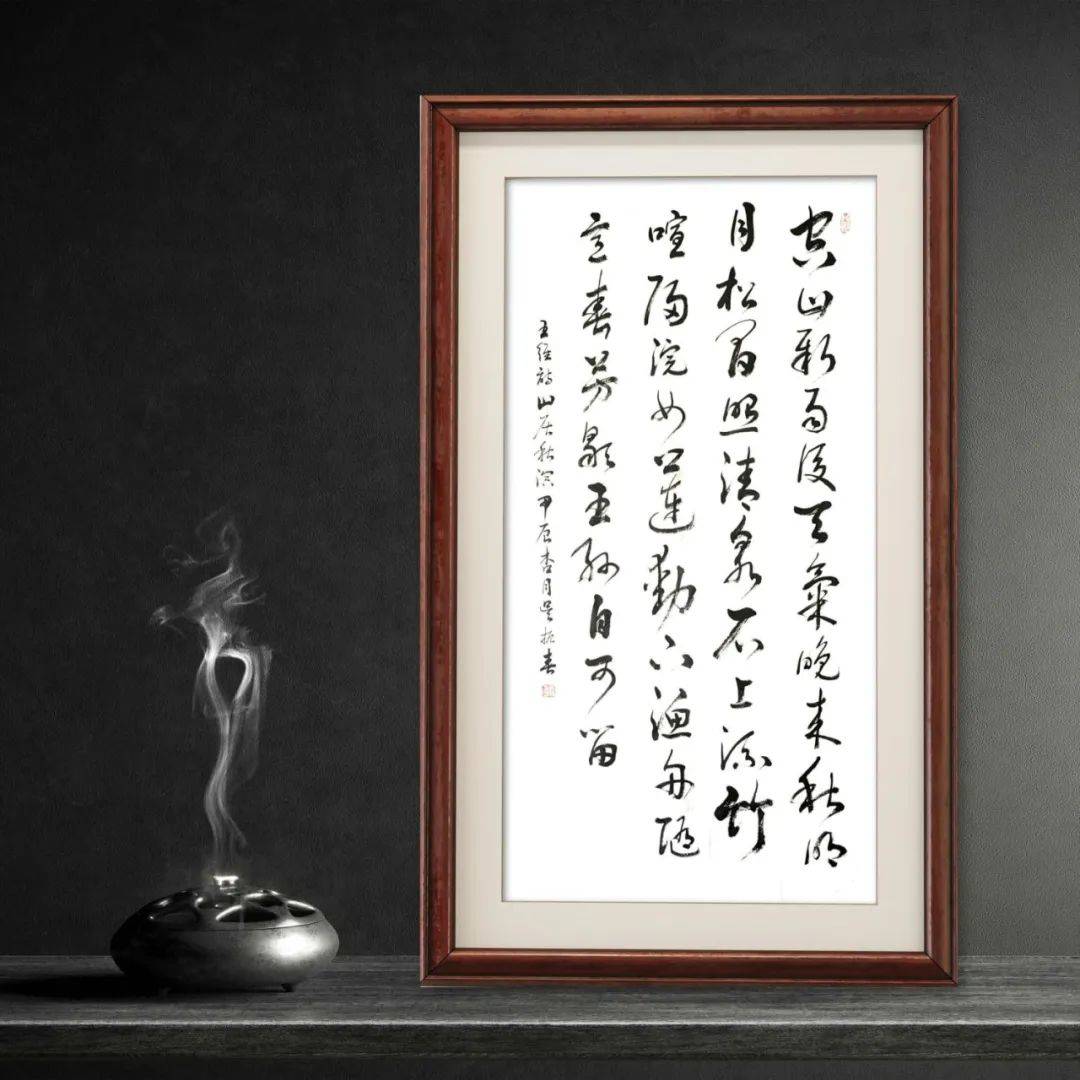 空山新雨後天氣晚来秋明
月松间照清泉石上流竹
喧歸浣女蓮動下漁舟随
意春芳歇王孫自可留
王維詩山居秋暝甲辰杏月吴振春